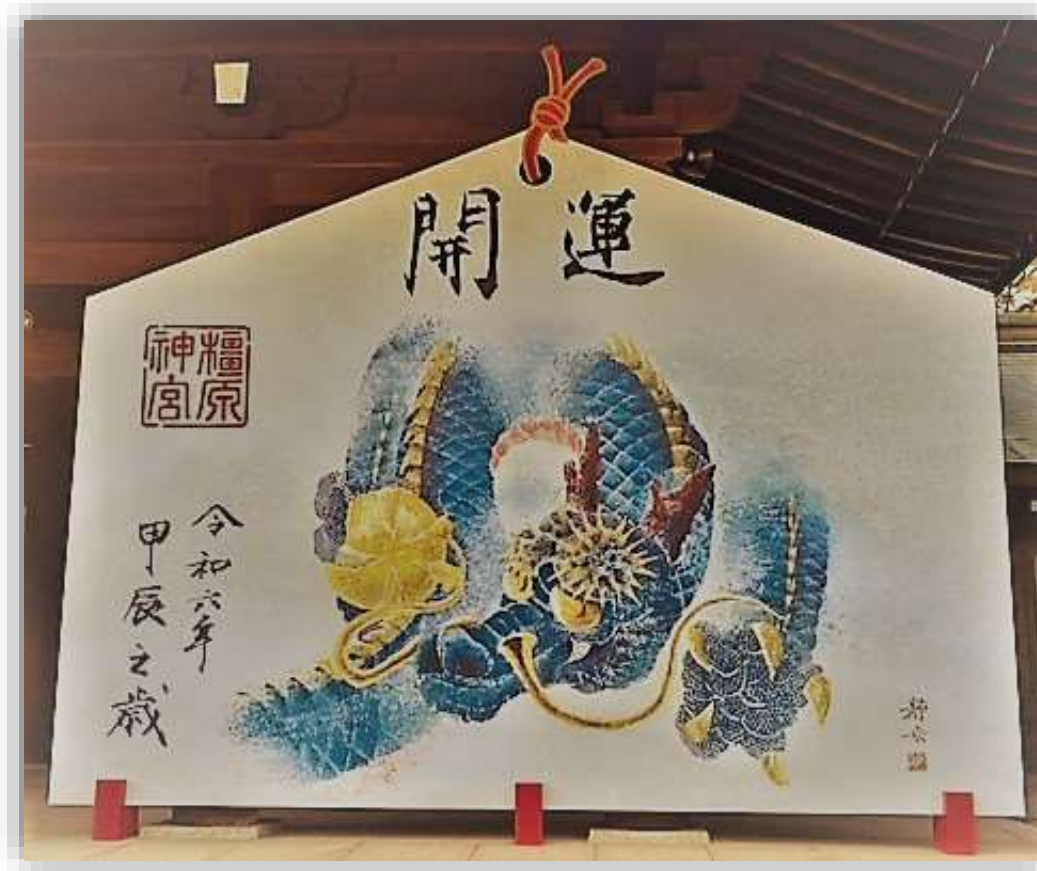 開運
橿原
神宮
令和六年
甲辰之歳